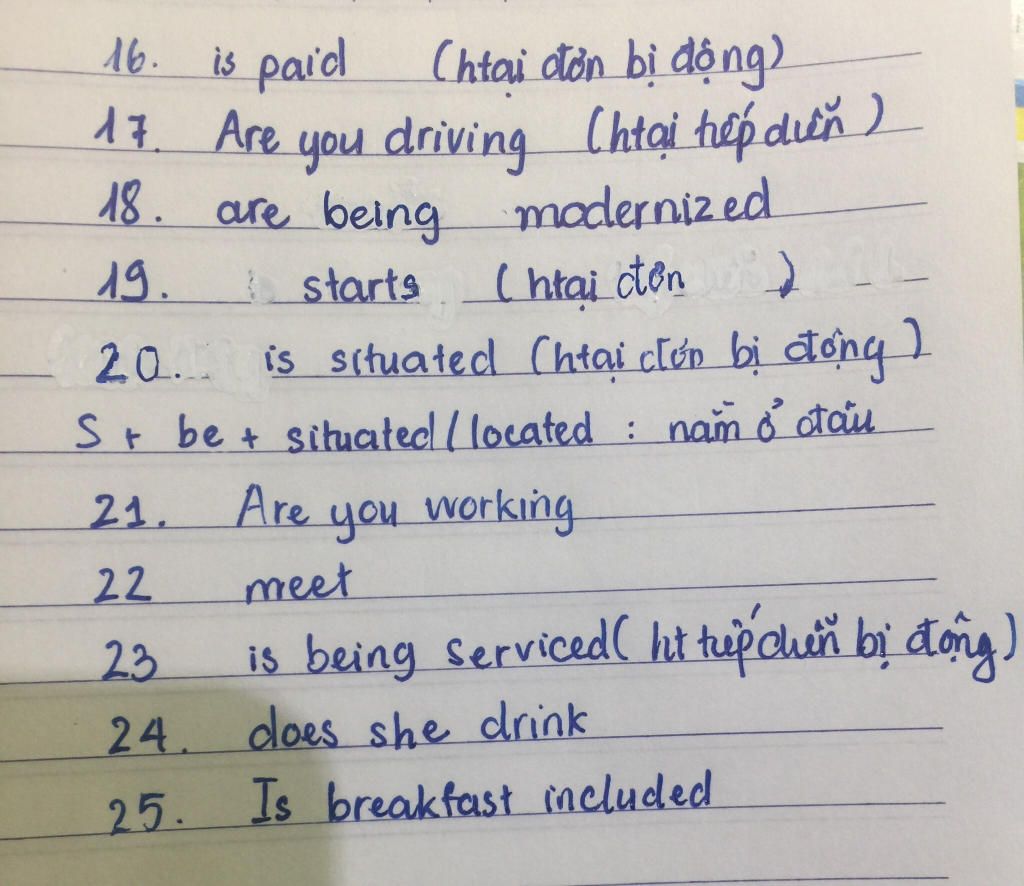 16. is paid (htại đơn bị động)
17. Are you driving (htại tiếp diễn)
18. are being modernized
19. starts (htại đơn )
20. is situated (htại đơn bị động)
S + be + situated / located : nằm ở đâu
21. Are you working
22 meet
23 is being serviced (ht tiếp diễn bị động)
24. does she drink
25. Is breakfast included